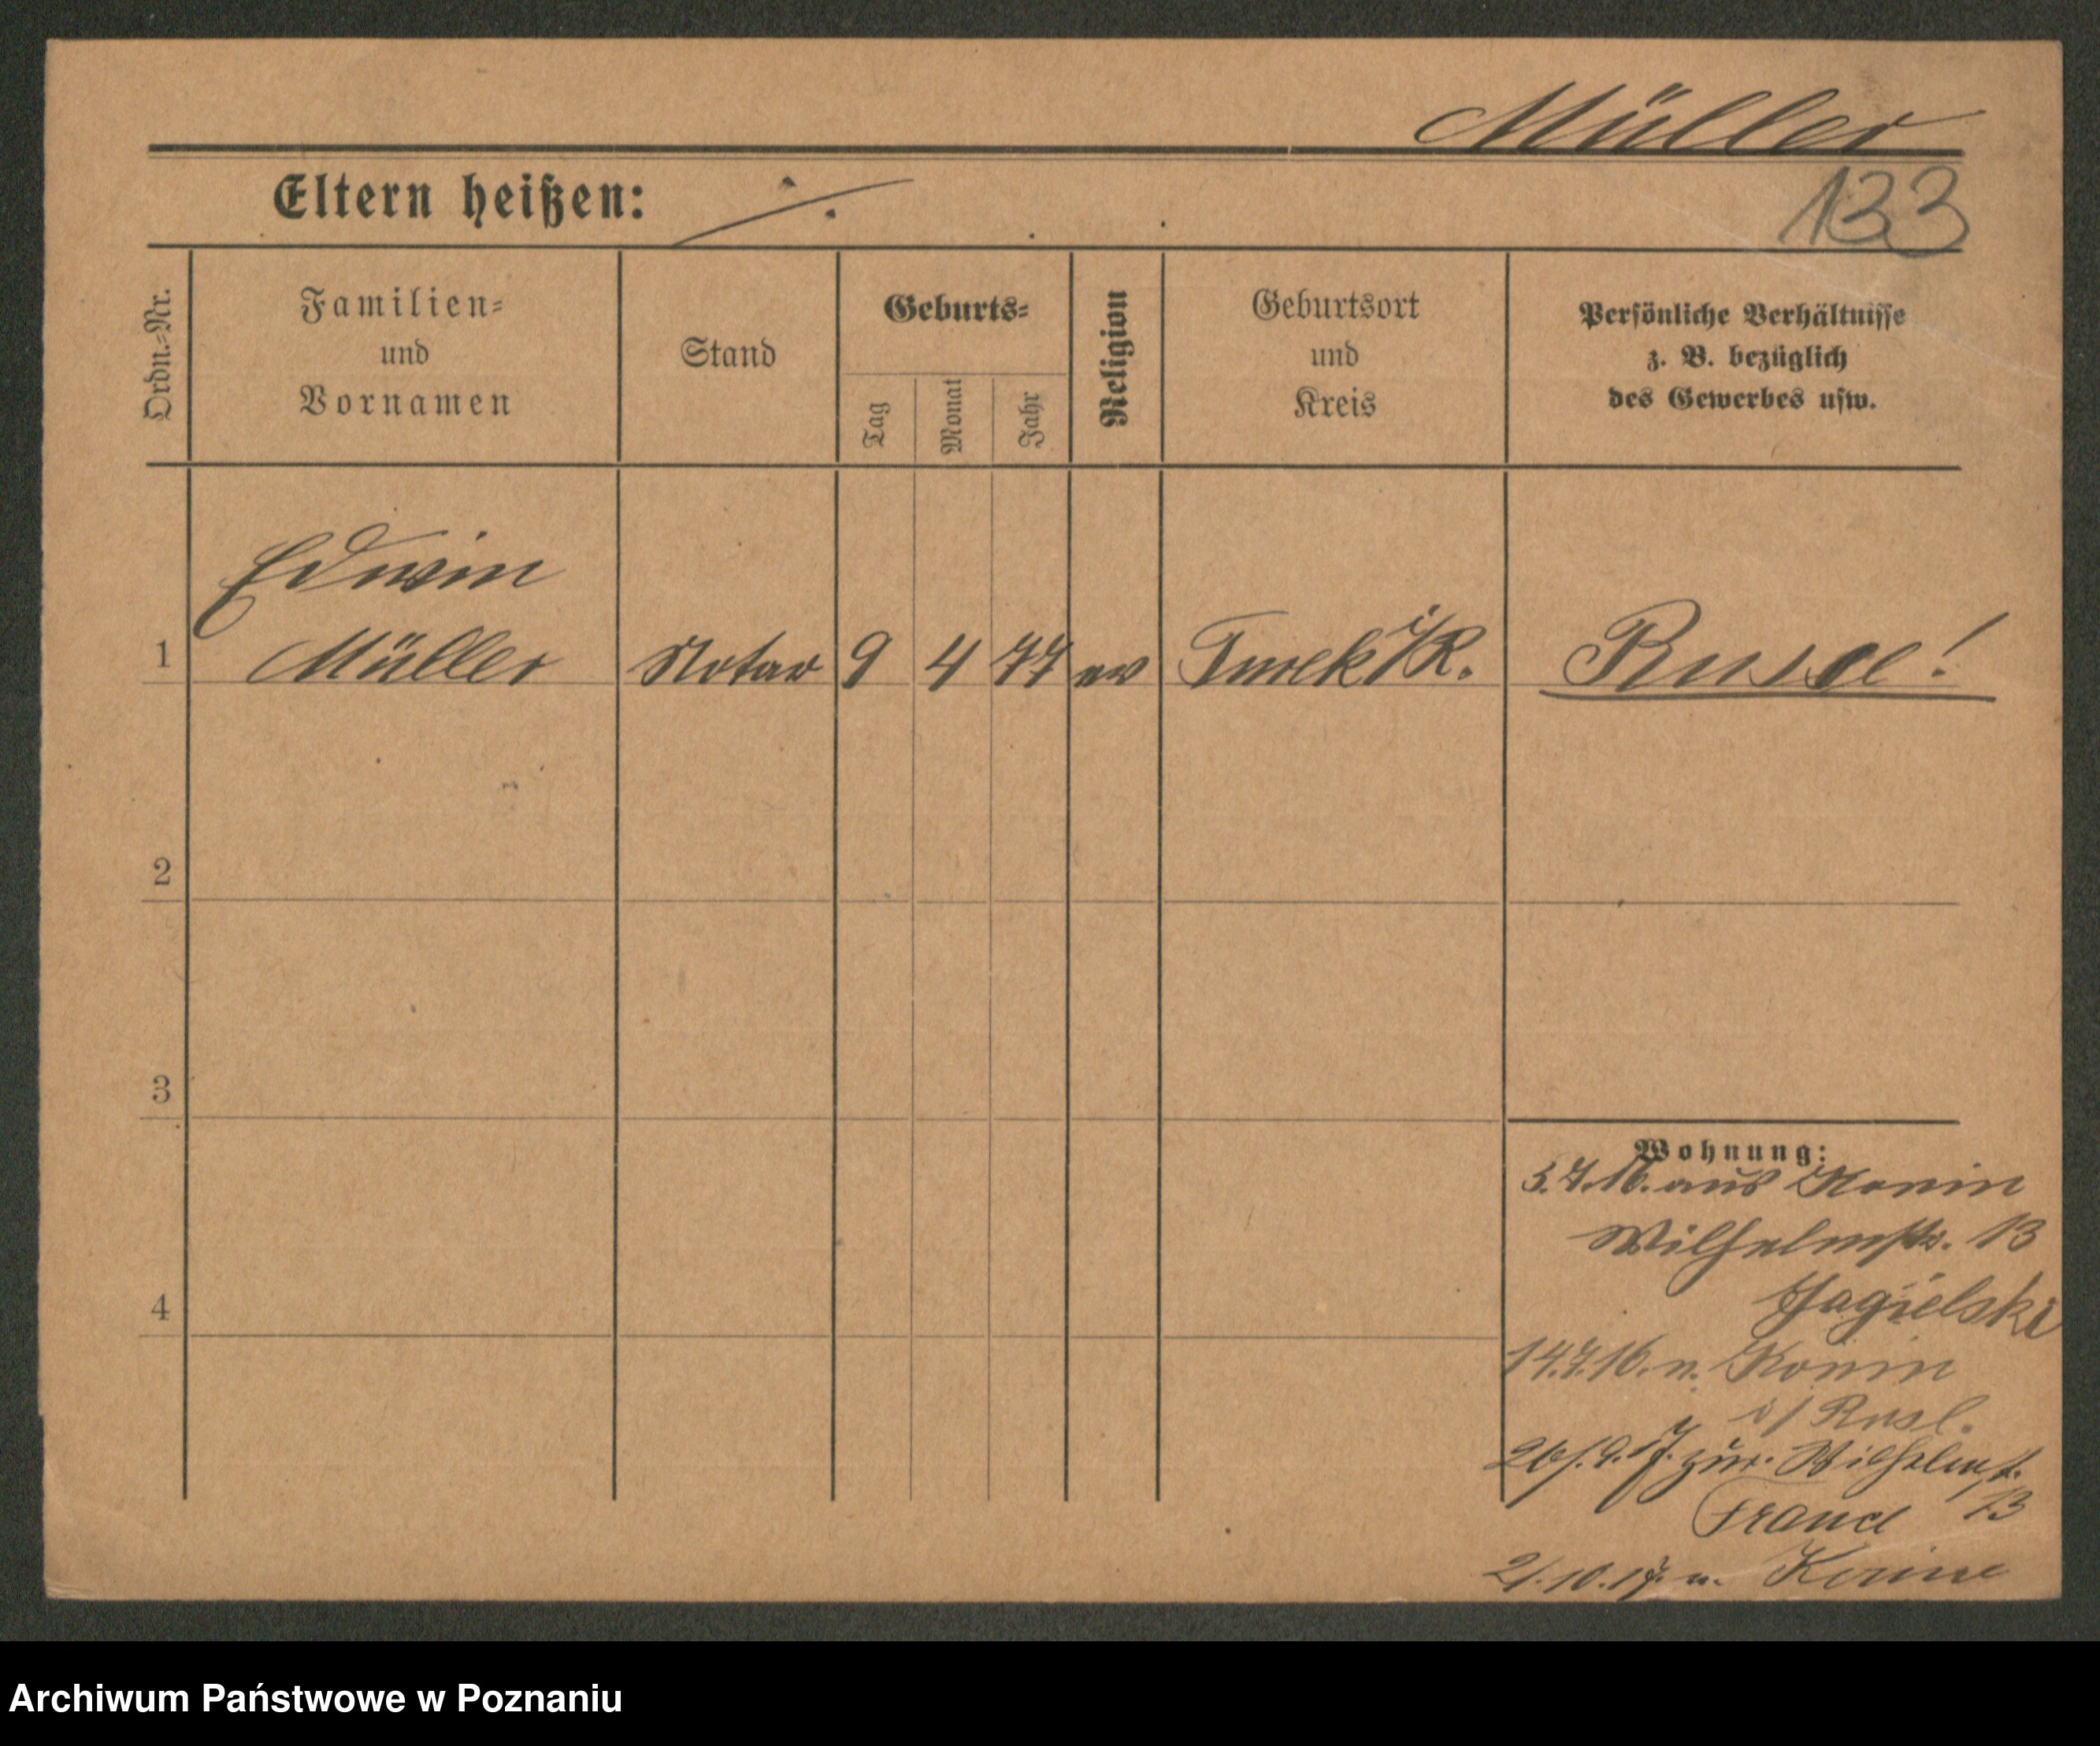 Müller
Eltern heißen: ∕.
133
Ordn.-Nr.
Familien-
und
Vornamen
Stand
Geburts-
Tag
Monat
Jahr
Religion
Geburtsort
und
Kreis
Persönliche Verhältnisse
z. B. bezüglich
des Gewerbes usw.
Edwin
1 Müller Notar 9 4 77 ev Turek i/R. Russe!
2
3
4
Wohnung:
5.7.16. aus Konin
Wilhelmstr. 13
Jagielski
14.7.16. n. Konin
i/Russl.
26/.9.17. zur. Wilhelmst.
13
Francl
2/.10.17. n. Konin
Archiwum Państwowe w Poznaniu